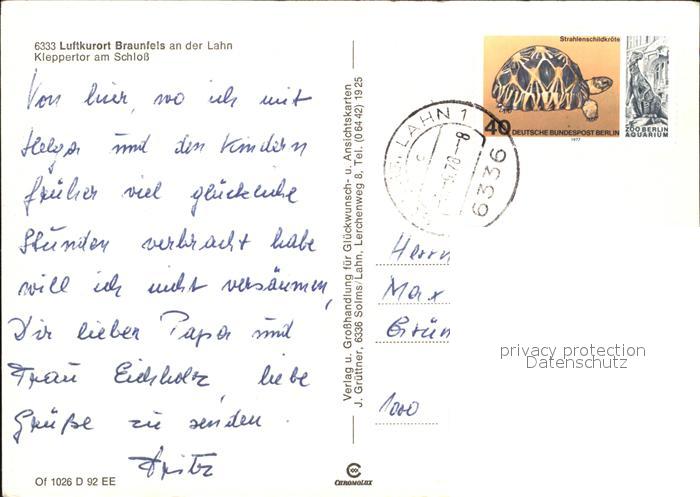 6333 Luftkurort Braunfels an der Lahn
Kleppertor am Schloß
Von hier, wo ich mit
Helga und den Kindern
früher viel glückliche
Stunden verbracht habe
will ich nicht versäumen,
Dir lieber Papa und
Frau Eichholz liebe
Grüße zu senden.
Fritz
Of 1026 D 92 EE
Verlag u. Großhandlung für Glückwunsch- u. Ansichtskarten
J. Grüttner, 6336 Solms/Lahn, Lerchenweg 8, Tel. (0 64 42) 19 25
CHROMOLUX
Strahlenschildkröte
40 DEUTSCHE BUNDESPOST BERLIN
1977
ZOO BERLIN
AQUARIUM
LAHN 1
6336
Herrn
Max
Grün
1000
privacy protection
Datenschutz